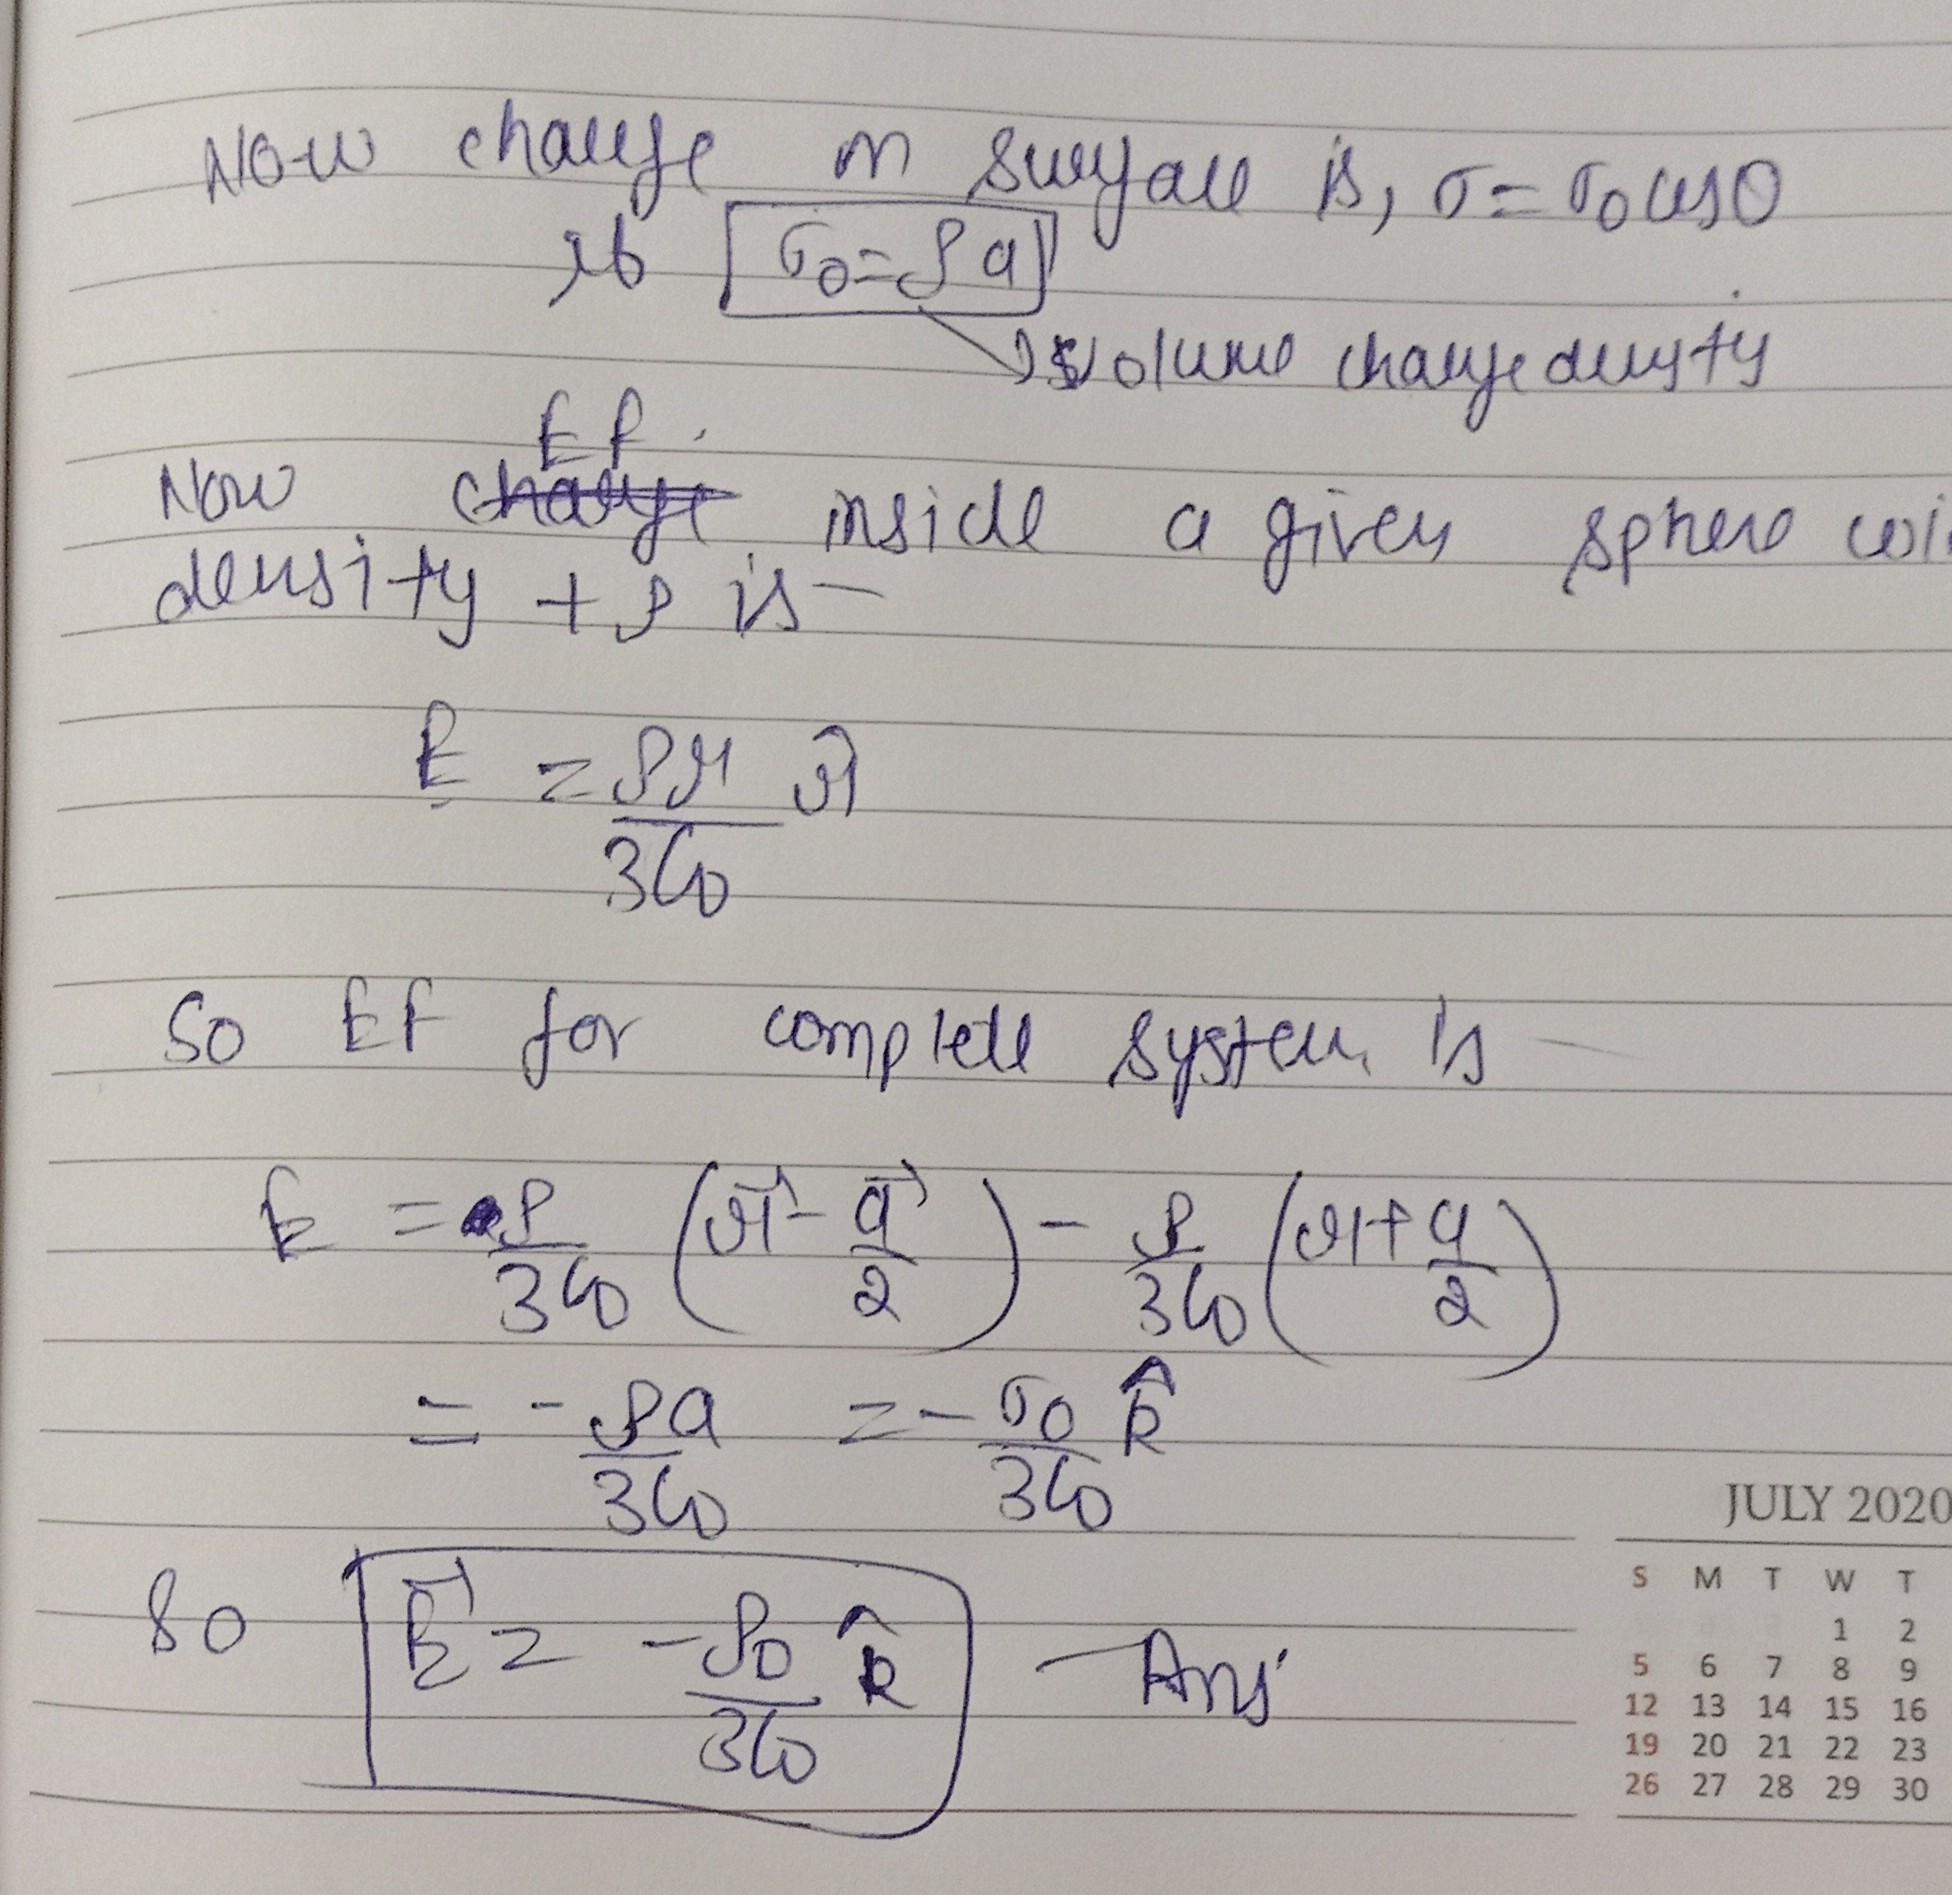 Now charge on surface is, σ = σ₀ cosθ
if σ₀ = ρa
volume charge density
EF
Now charge inside a given sphere wi
density + ρ is —
E = ρr/3ϵ₀ r̂
So EF for complete system is —
E = ρ/3ϵ₀ (r⃗ - a⃗/2) - ρ/3ϵ₀ (r + a/2)
= - ρa/3ϵ₀ = - σ₀/3ϵ₀ k̂
So E⃗ = - ρ₀/3ϵ₀ k̂ — Ans
JULY 2020
S M T W T
1 2
5 6 7 8 9
12 13 14 15 16
19 20 21 22 23
26 27 28 29 30